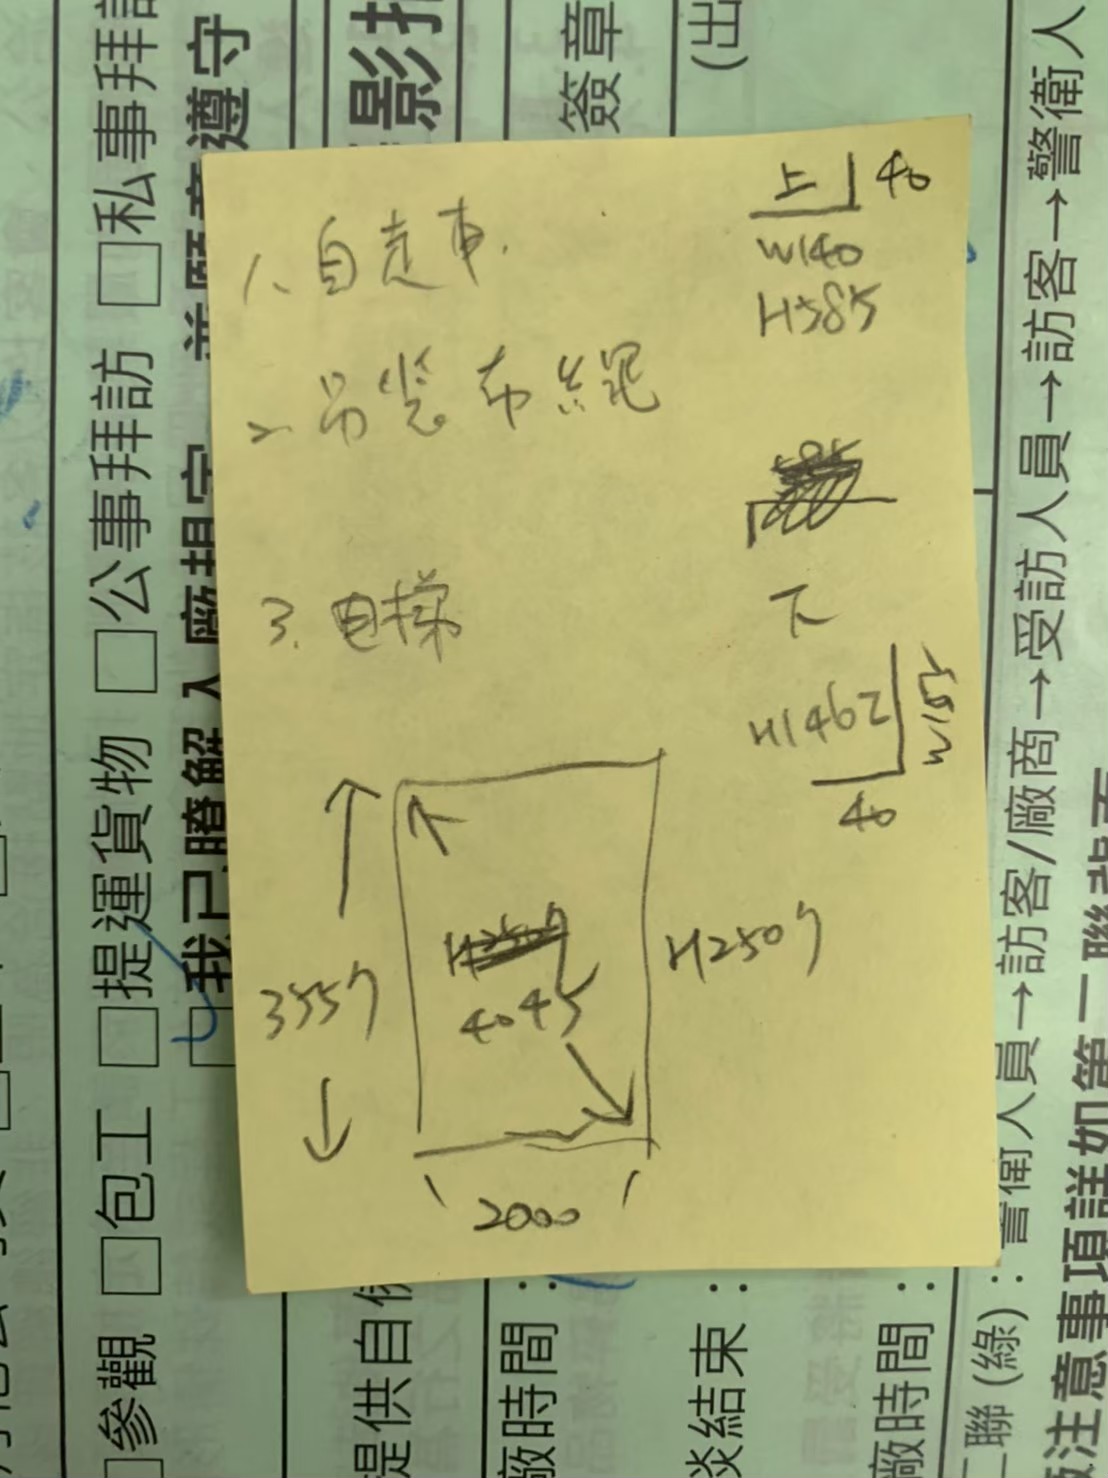 1. 自走車.
2. 吊裝布繩
3. 电梯
上 40
W140
H585
下
H1462 W155
40
3557
4045
H2507
2000
影
簽章
(出
遵守
□參觀 □包工 □提運貨物 □公事拜訪 □私事拜訪
我已瞭解
提供自備
廠時間：
談結束：
廠時間：
二聯 (綠)：警衛人員→訪客/廠商→受訪人員→訪客→警衛人
注意事項詳如第二聯背面